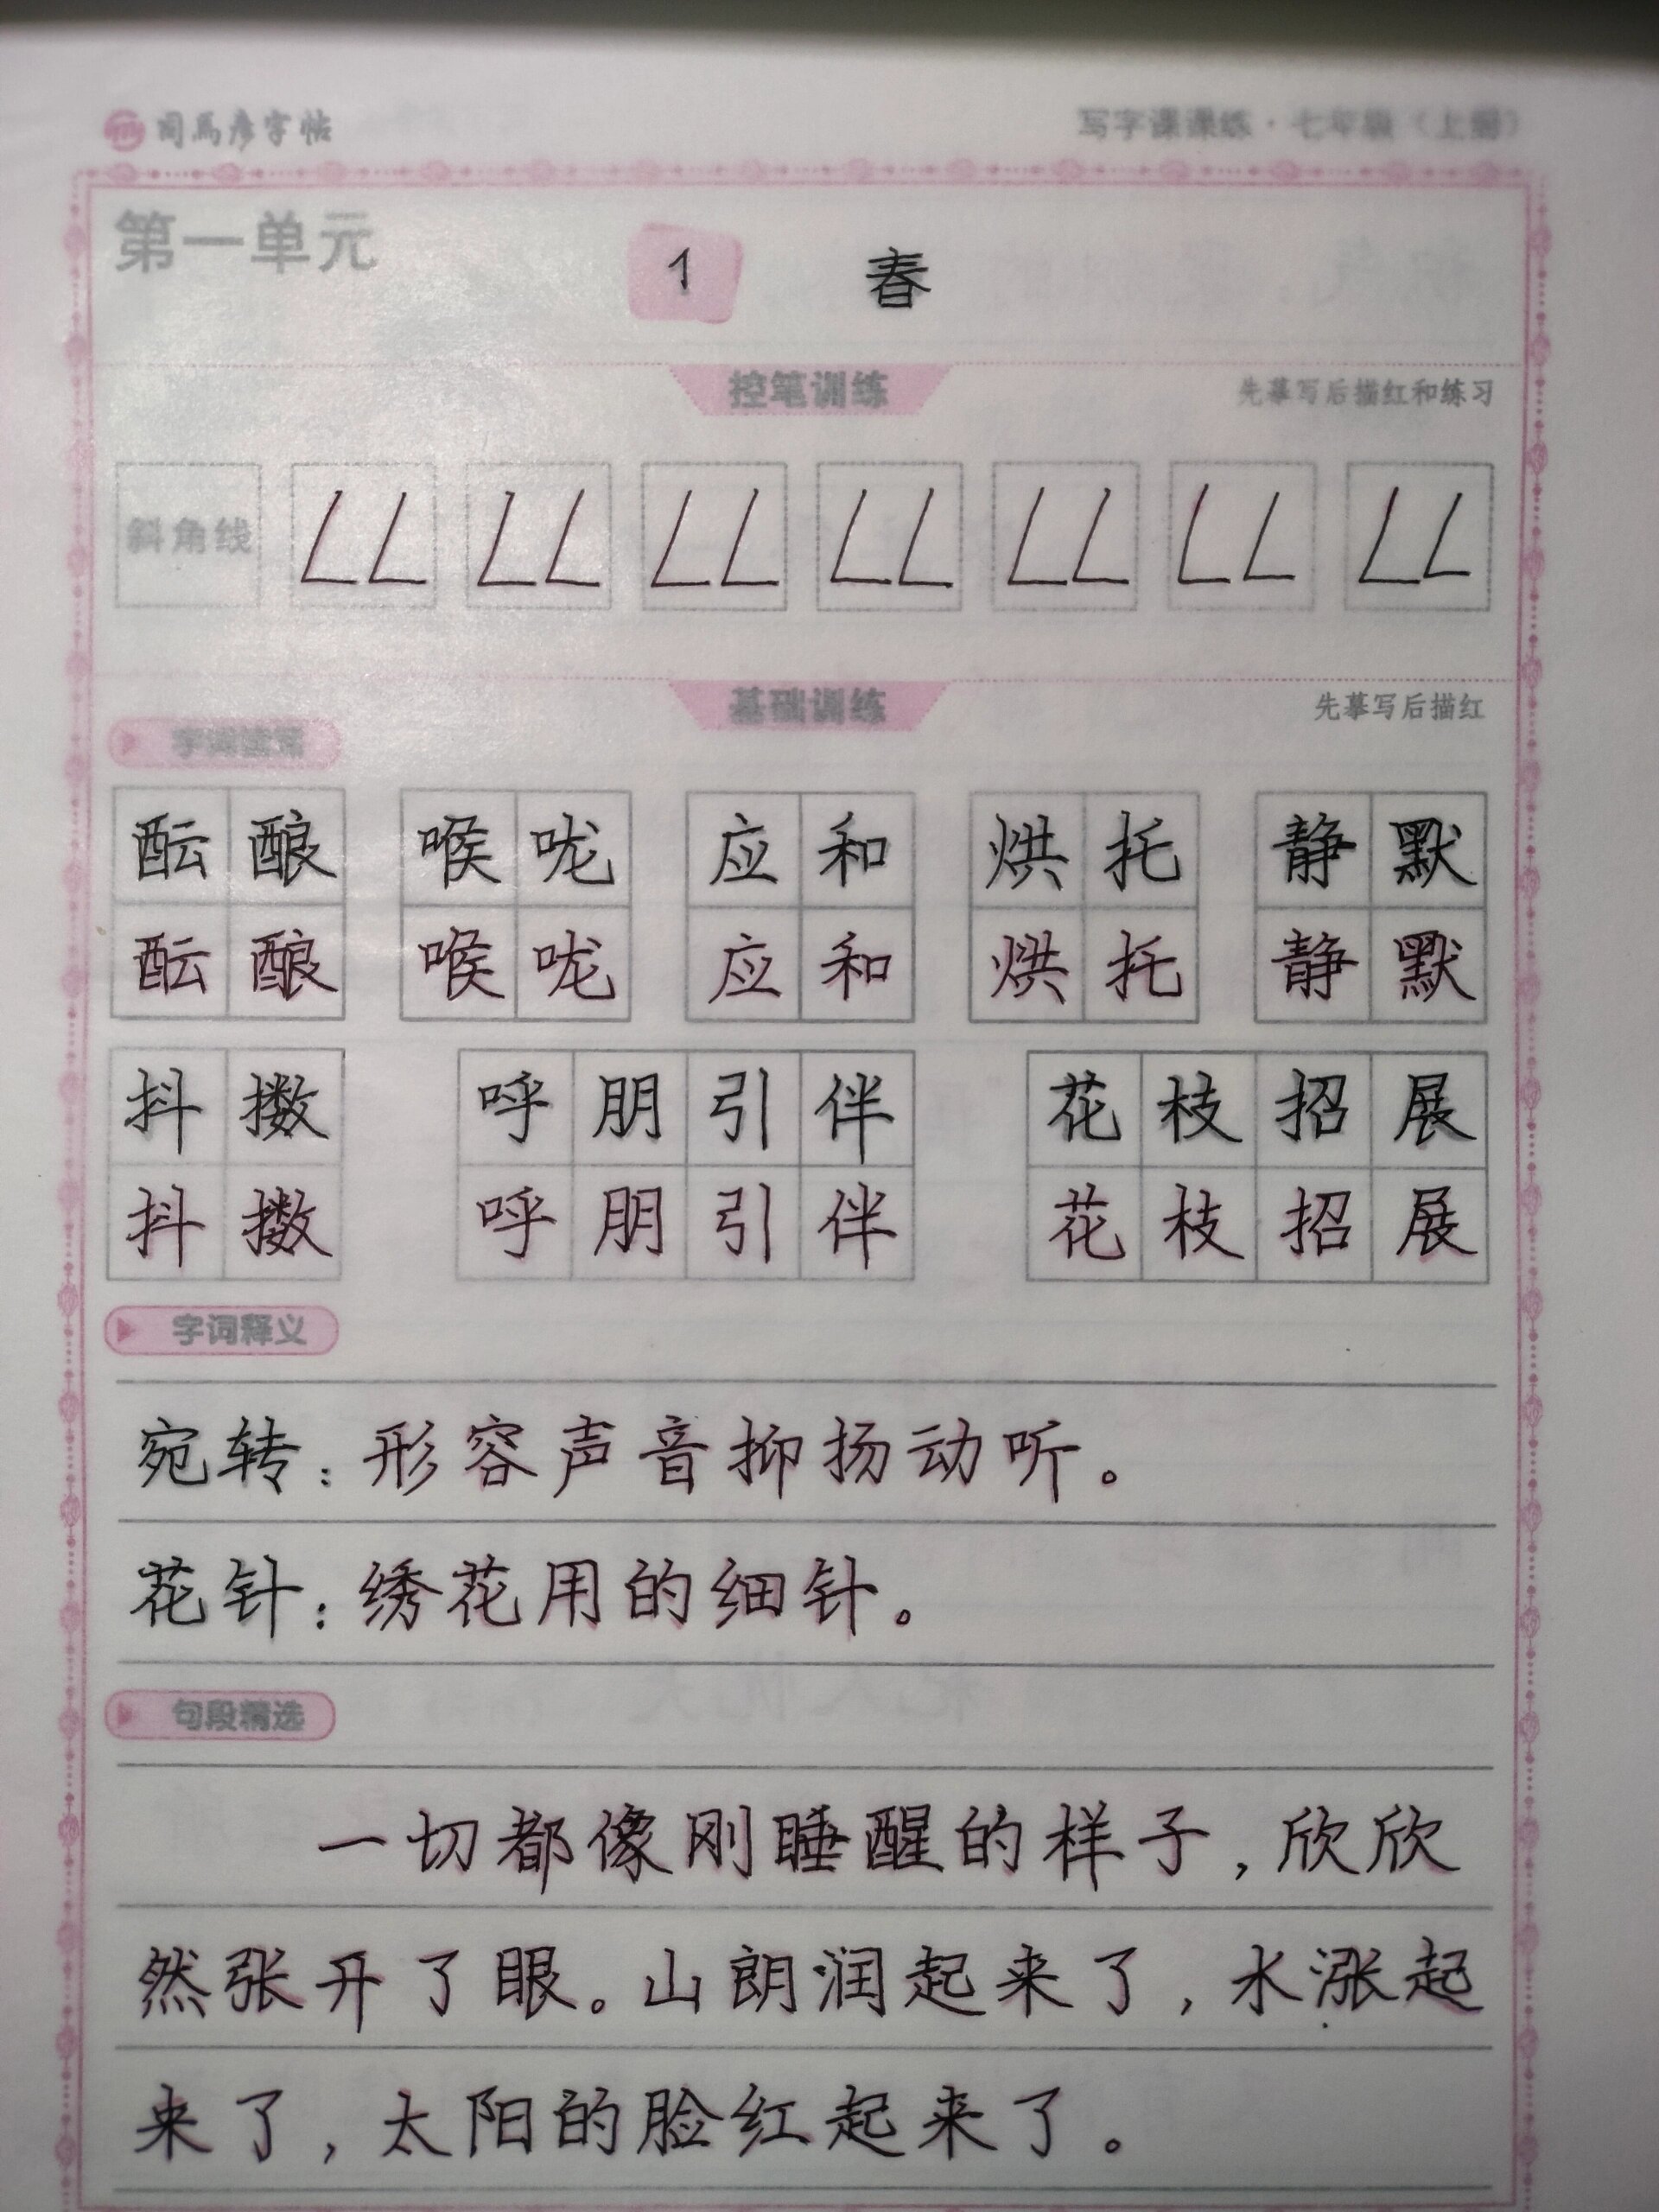 司马彦字帖
写字课课练·七年级（上册）
第一单元
1 春
控笔训练
先摹写后描红和练习
斜角线
基础训练
先摹写后描红
字词读写
酝酿 喉咙 应和 烘托 静默
酝酿 喉咙 应和 烘托 静默
抖擞 呼朋引伴 花枝招展
抖擞 呼朋引伴 花枝招展
字词释义
宛转：形容声音抑扬动听。
花针：绣花用的细针。
句段精选
一切都像刚睡醒的样子，欣欣
然张开了眼。山朗润起来了，水涨起
来了，太阳的脸红起来了。